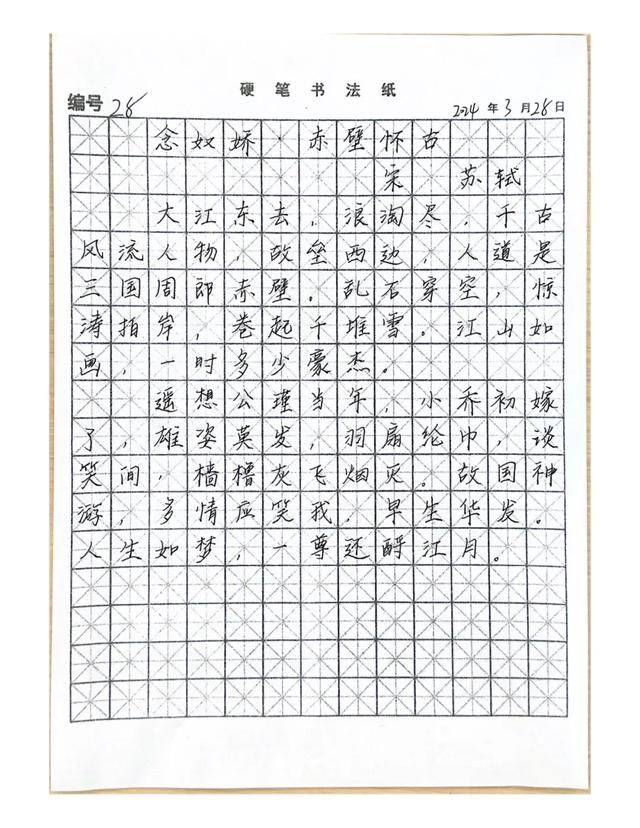 硬笔书法纸
编号 28 2024年3月28日
念奴娇·赤壁怀古
宋·苏轼
大江东去,浪淘尽,千古
风流人物,故垒西边,人道是
三国周郎赤壁。乱石穿空,惊
涛拍岸,卷起千堆雪。江山如
画,一时多少豪杰。
遥想公瑾当年,小乔初嫁
了,雄姿英发,羽扇纶巾,谈
笑间,樯橹灰飞烟灭。故国神
游,多情应笑我,早生华发。
人生如梦,一尊还酹江月。